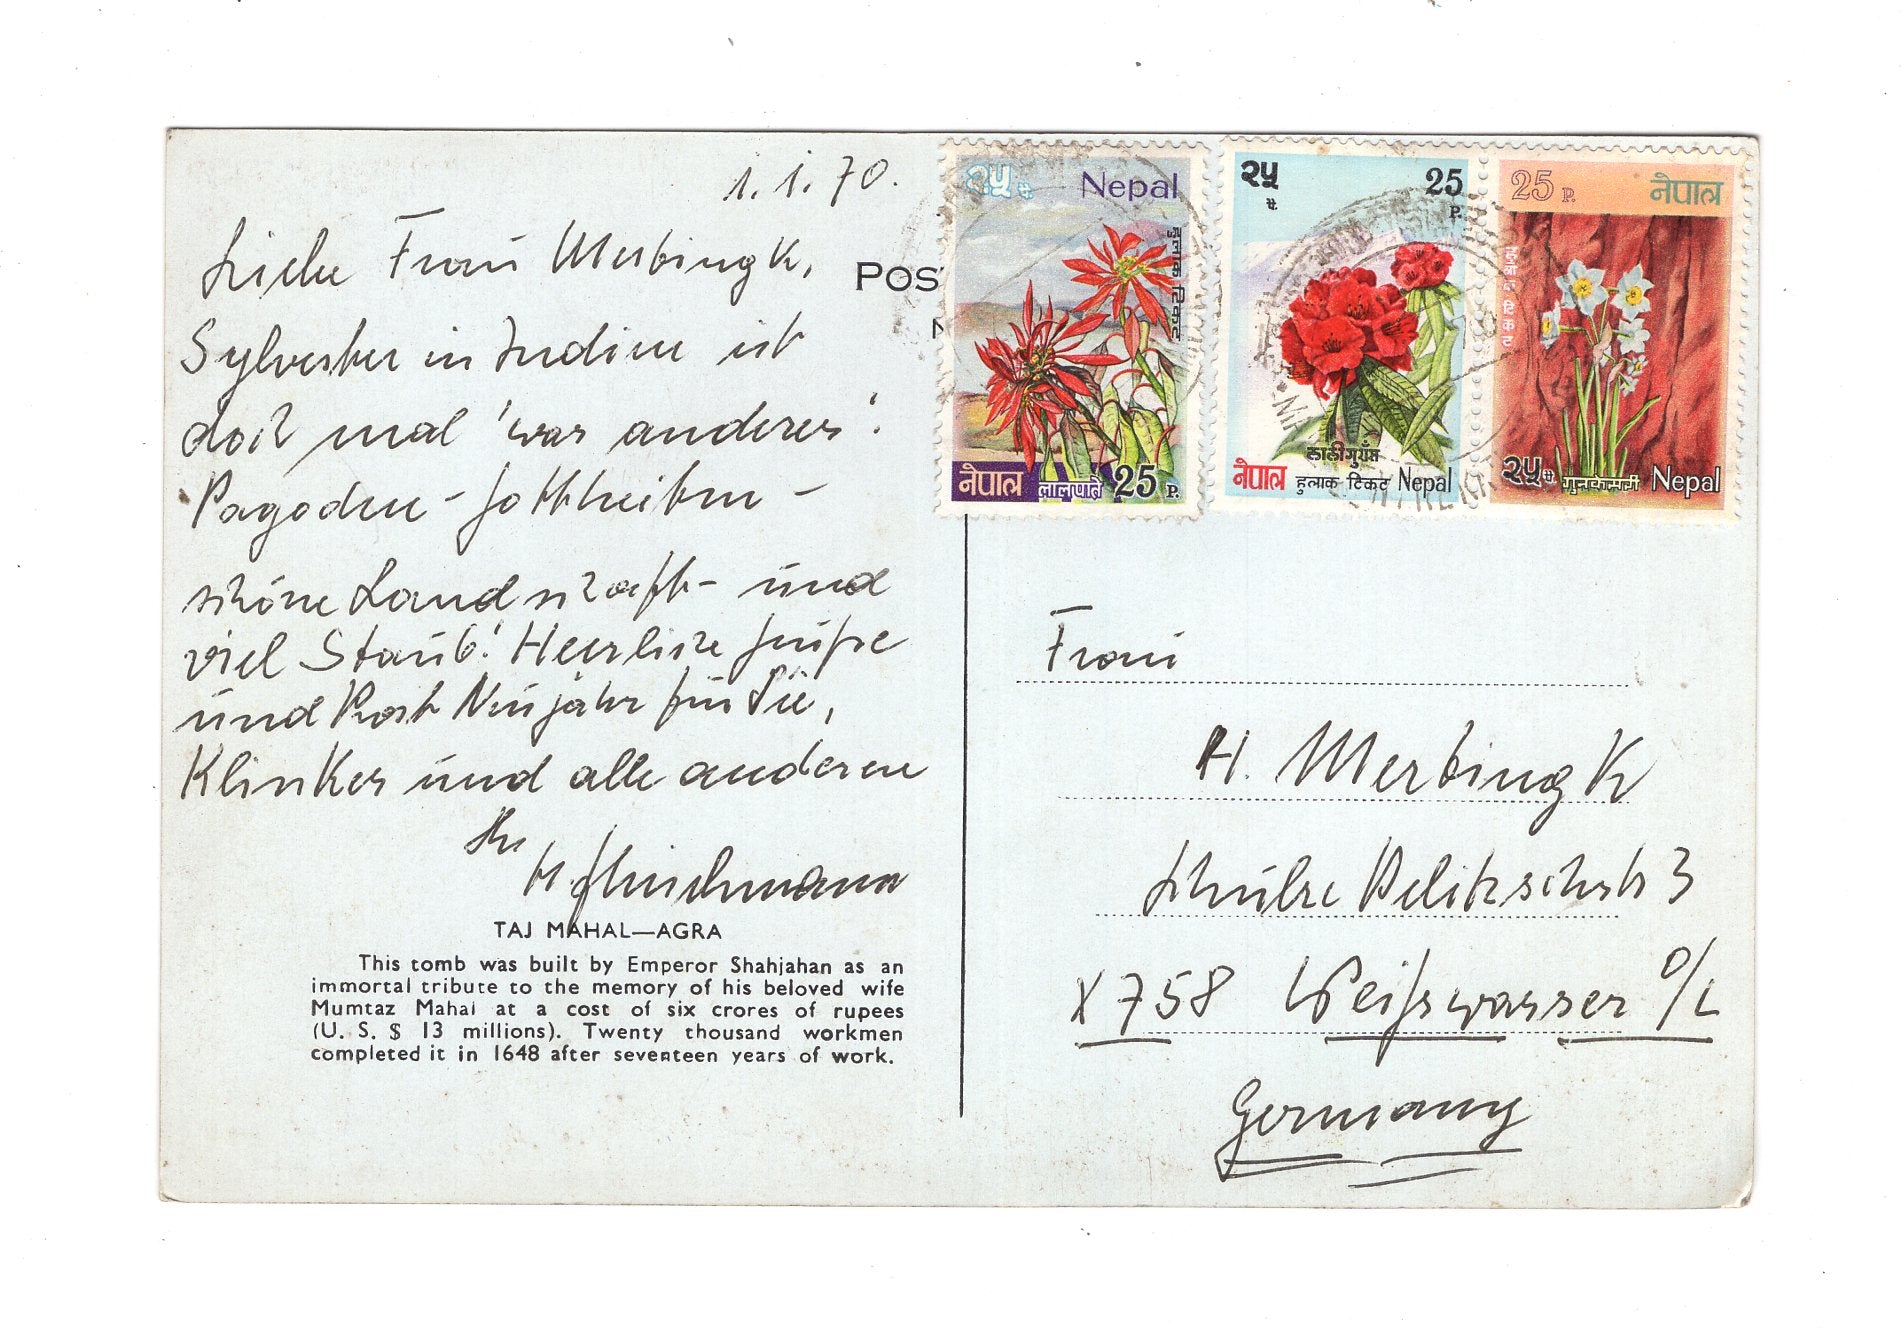 1.1.70.
Liebe Frau Merbingk,
Sylvester in Indien ist
doch mal 'was anderes'!
Pagoden - Gottheiten -
schöne Landschaft - und
viel Staub! Herzliche Grüße
und Prost Neujahr für Sie,
Klinker und alle anderen
Ihr
H.
TAJ MAHAL—AGRA
This tomb was built by Emperor Shahjahan as an
immortal tribute to the memory of his beloved wife
Mumtaz Mahal at a cost of six crores of rupees
(U. S. $ 13 millions). Twenty thousand workmen
completed it in 1648 after seventeen years of work.
POS
२५ पै. Nepal
हुलाक टिकट
नेपाल लालुपाते 25 P.
२५ पै. 25 P.
लालीगुराँस
नेपाल हुलाक टिकट Nepal
25 P. नेपाल
हुलाक टिकट
२५ पै. गुनकेसरी Nepal
Frau
H. Merbingk
Schulze Delitzschstr 3
X 758 Weißwasser O/L
Germany